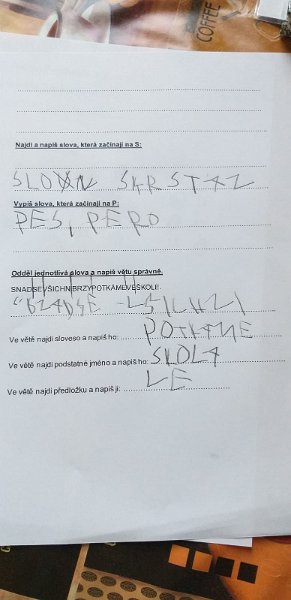 COFFEE
Najdi a napiš slova, která začínají na S:
SLOVN SKRSTAN
Vypiš slova, která začínají na P:
PES, PERO
Odděl jednotlivá slova a napiš větu správně.
SNADSEVŠICHNIBRZYPOTKÁMEVEŠKOLE.
Ve větě najdi sloveso a napiš ho: POTKAME
Ve větě najdi podstatné jméno a napiš ho: SKOLA
Ve větě najdi předložku a napiš ji: VE